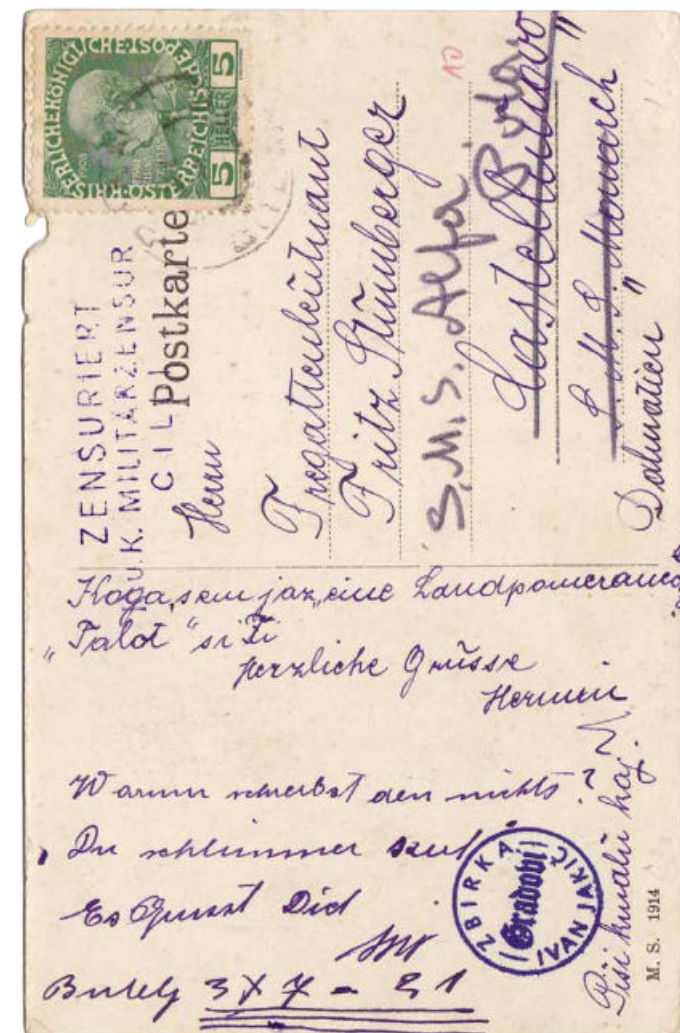 KAISERLICHE KÖNIGLICHE ÖSTERREICHISCHE POST
5 HELLER 5
ZENSURIERT
K.U.K. MILITÄRZENSUR
CILLI
Postkarte
10
Herrn
Fregattenleutnant
Fritz
S.M.S. Alfa.
Pola
Castellnuovo
S. M. S. Monarch"
Dalmatien"
Koga sem jaz, eine Landpomeranca
"Talot" si Ti
Herzliche Grüsse
Hermin
Warum schreibst den nichts?
Du schlimmer
Es Grusst Dich
3 X 7 = 21
Piši kmalu kaj.
ZBIRKA
Gradobij
IVAN JAKIČ
M. S. 1914